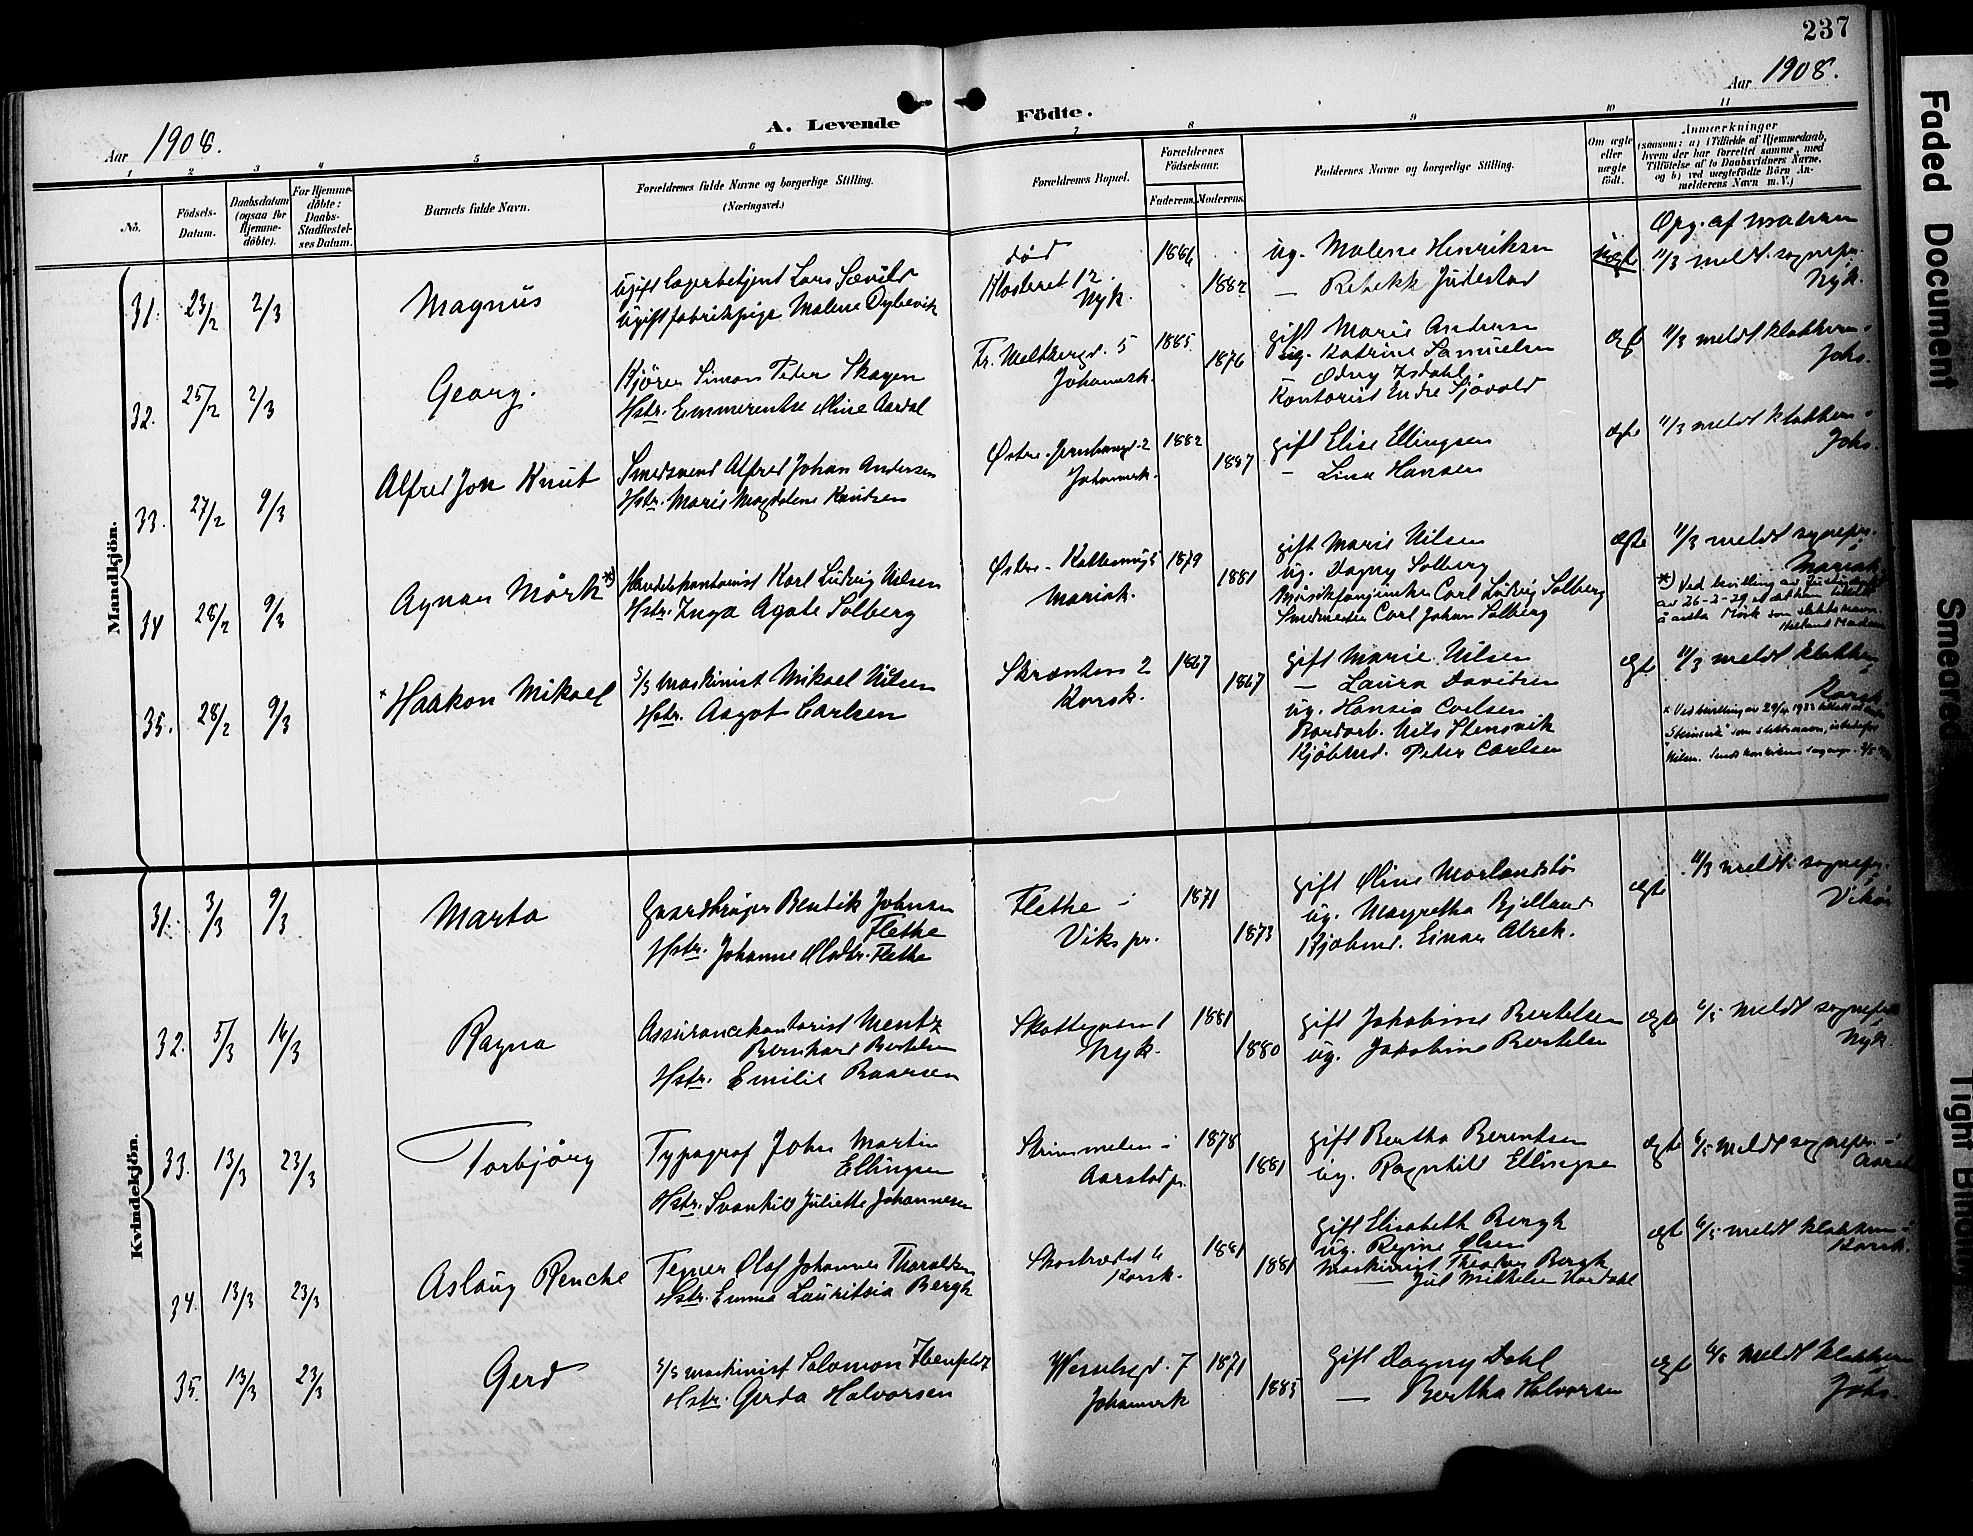 237
Aar 1908.
Aar 1908.
A. Levende Födte.
1 2 3 4 5 6 7 8 9 10 11
No.
Födsels-
Datum.
Daabsdatum
(ogsaa for
Hjemme-
döbte).
For Hjemme-
döbte:
Daabs-
Stadfæstel-
ses Datum.
Barnets fulde Navn.
Forældrenes fulde Navne og borgerlige Stilling.
(Næringsvei.)
Forældrenes Bopæl.
Forældrenes
Födselsaar.
Faderens. Moderens.
Faddernes Navne og borgerlige Stilling.
Om ægte
eller
uægte
födt.
Anmærkninger
(saasom: a) i Tilfælde af Hjemmedaab,
hvem der har forrettet samme, med
Tilföielse af to Daabsvidners Navne,
og b) ved uægtefödte Börn An-
melderens Navn m. V.)
Mandkjön.
31. 23/2 2/3 Magnus
Ugift lagerbetjent Lars Sævild
Ugift fabrikpige Malene Dybevik
död
Klosteret 12
Nyk.
1886 1882
ug. Malene Henriksen
— Rebekk Judestad
uægte
Opg. af moderen
11/3 meldt sognepr.
Nyk.
32. 25/2 2/3 Georg.
Kjörer Simon Peder Skagen
Hstr. Emmerentse Oline Aardal
Fr. Meltzersgd. 5
Johannesk.
1885 1876
gift Marie Andersen
ug. Katrine Samuelsen
— Odny Isdahl
Kontorist Endre Sjövold
ægte
11/3 meldt klokkeren i
Johs.
33. 27/2 9/3 Alfred Jon Knut
Smedsvend Alfred Johan Andersen
Hstr. Marie Magdalene Knudsen
Östre. 2
Johannesk.
1882 1887
gift Elise Ellingsen
— Lina Hansen
ægte
11/3 meldt klokkeren i
Johs.
34 28/2 9/3 Agnar Mörk *)
Handelskontorist Karl Ludvig Nilsen
Hstr. Inga Agate Solberg
Östre
Mariak.
1879 1881
gift Marie Nilsen
ug. Dagny Solberg
Carl Ludvig Solberg
Smedmester Carl Johan Solberg
ægte
11/3 meldt sognepr. i
Mariak.
*) Ved bevilling av
av 26-2-29 er
å anta Mörk som slektsnavn.
35. 28/2 9/3 * Haakon Mikael
S/S maskinist Mikael Nilsen
Hstr. Aagot Carlsen
Skrænten 2
Korsk.
1867 1867
gift Marie Nilsen
— Laura Davidsen
ug. Hansia Carlsen
Nils Stensvik
Kjöbmd. Peter Carlsen
ægte
11/3 meldt klokkeren i
Korsk.
* Ved bevilling av 29/4 1933
"Steinsvik" som slektsnavn, istedenfor
Nilsen.
Kvindekjön.
31. 3/3 9/3 Marta
Gaardbruger Bendik Johnsen
Flethe
Hstr. Johanne Olsdtr. Flethe
Flethe i
Viks pr.
1871 1873
gift Oline Morlandstö
ug. Magretha Bjelland
Kjöbmd. Einar Alrek.
ægte
11/3 meldt sognepr. i
Vikör
32. 5/3 16/3 Ragna
Assurancekontorist Mentz
Bernhard Bertelsen
Hstr. Emilie Baarsen
Skottegaten 1
Nyk.
1881 1880
gift Jakobine Bertelsen
ug. Jakobine Bertelsen
ægte
6/5 meldt sognepr. i
Nyk.
33. 13/3 23/3 Torbjörg
Typograf John Martin
Ellingsen
Hstr. Svanhild Juliette Johannesen
Strimmelen i
Aarstad pr.
1878 1881
gift Bertha Berentsen
ug. Ragnhild Ellingsen
ægte
6/5 meldt sognepr. i
Aarstad
34. 13/3 23/3 Aslaug Renche
Tegner Olaf Johannes Thoraldsen
Hstr. Emma Lauritzia Bergh
Skostrædet 6
Korsk.
1881 1881
gift Elisabeth Bergh
ug. Regine Olsen
Maskinist Theodor Bergh
— Jul Mikkelsen Hordahl
ægt
6/5 meldt klokkeren i
Korsk.
35. 13/3 23/3 Gerd
S/S maskinist Salomon Ibenfeldt
Hstr. Gerda Halvorsen
Wesselsgd. 7
Johannesk
1871 1885
gift Dagny Dahl
— Bertha Halvorsen
ægt
6/5 meldt klokkeren i
Johs.
Faded Document
Smeared
Tight Binding